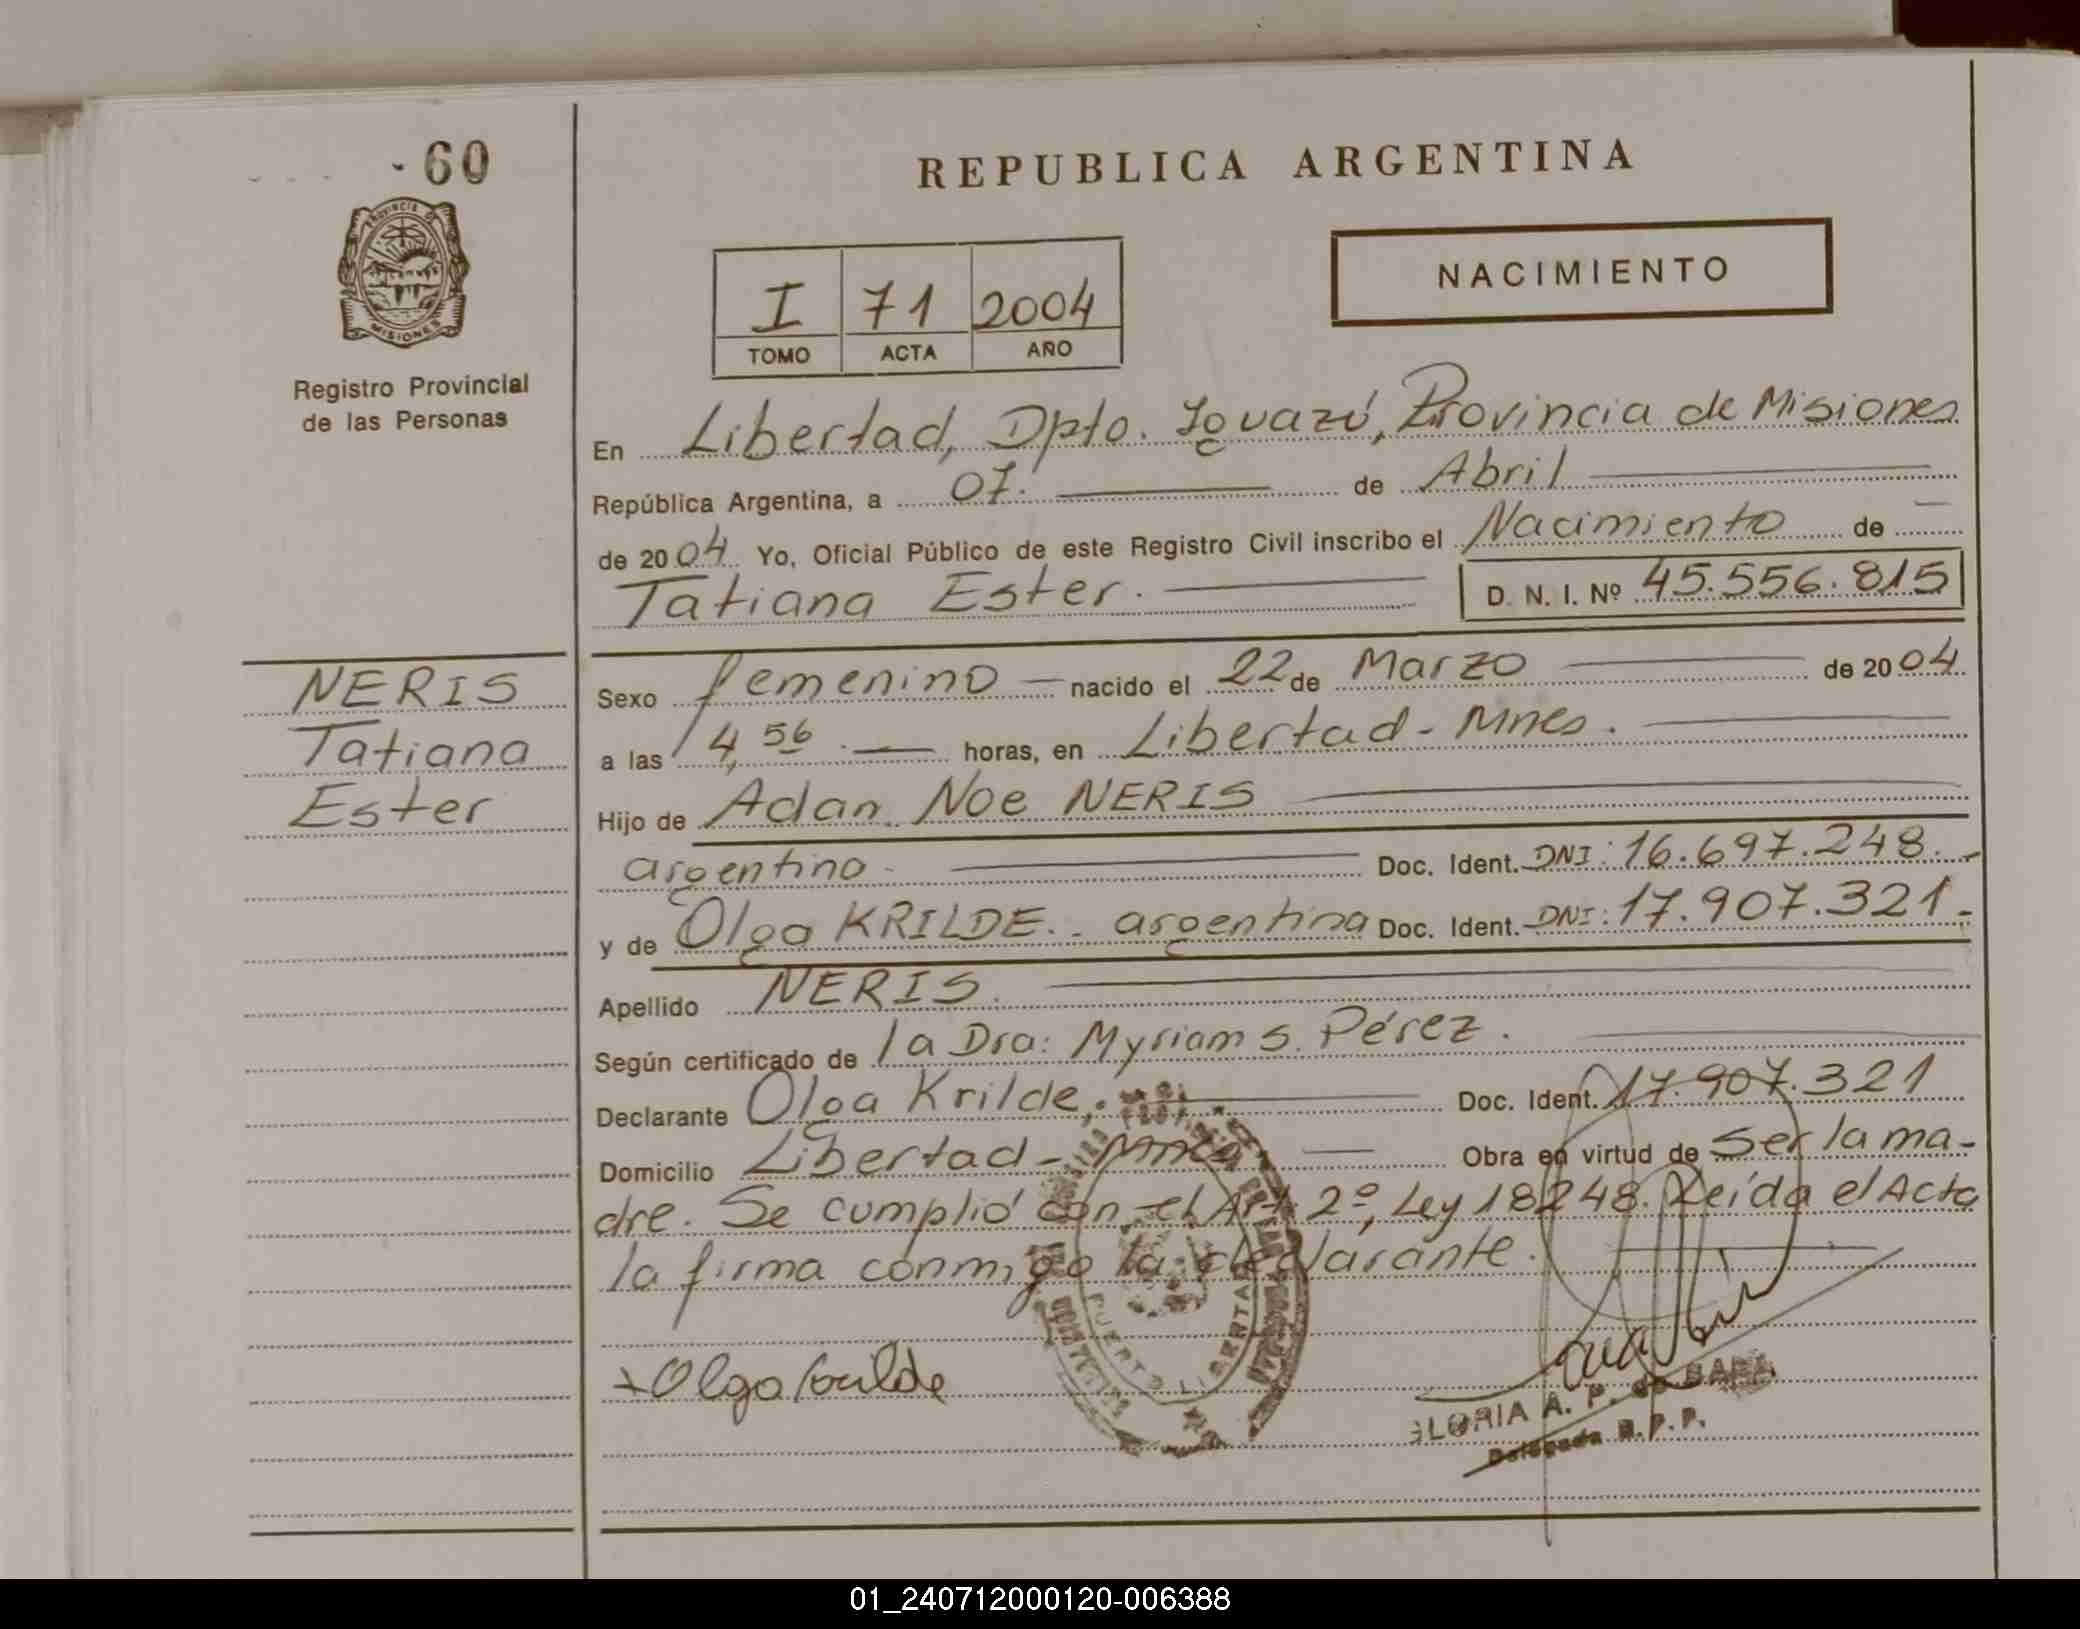 - 60
PROVINCIA DE
MISIONES
Registro Provincial
de las Personas
REPUBLICA ARGENTINA
NACIMIENTO
I 71 2004
TOMO ACTA AÑO
En Libertad, Dpto. Iguazú, Provincia de Misiones
República Argentina, a 07. de Abril
de 2004 Yo, Oficial Público de este Registro Civil inscribo el Nacimiento de
Tatiana Ester. D. N. I. Nº 45.556.815
NERIS
Tatiana
Ester
Sexo femenino nacido el 22 de Marzo de 2004
a las 14,56 horas, en Libertad - Mnes.
Hijo de Adan Noe NERIS
argentino - Doc. Ident. DNI: 16.697.248.-
y de Olga KRILDE.. argentina Doc. Ident. DNI: 17.907.321-
Apellido NERIS.
Según certificado de la Dra: Myriam S. Pérez.
Declarante Olga Krilde, Doc. Ident. 17.907.321
Domicilio Libertad - Mnes Obra en virtud de Ser la ma-
dre. Se cumplió con el Art 2º, Ley 18248. Leída el Acta
la firma conmigo la declarante.
PUERTO LIBERTAD
Olga Krilde
GLORIA A. P. de
Delegada R.P.P.
01_240712000120-006388